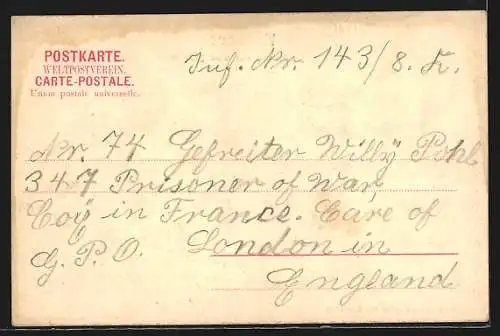 POSTKARTE.
WELTPOSTVEREIN.
CARTE-POSTALE.
Union postale universelle.
Inf. Nr. 143/8. K.
Nr. 74 Gefreiter Willy Pohl
347 Prisoner of War,
Coÿ in France. Care of
G. P. O. London in
England